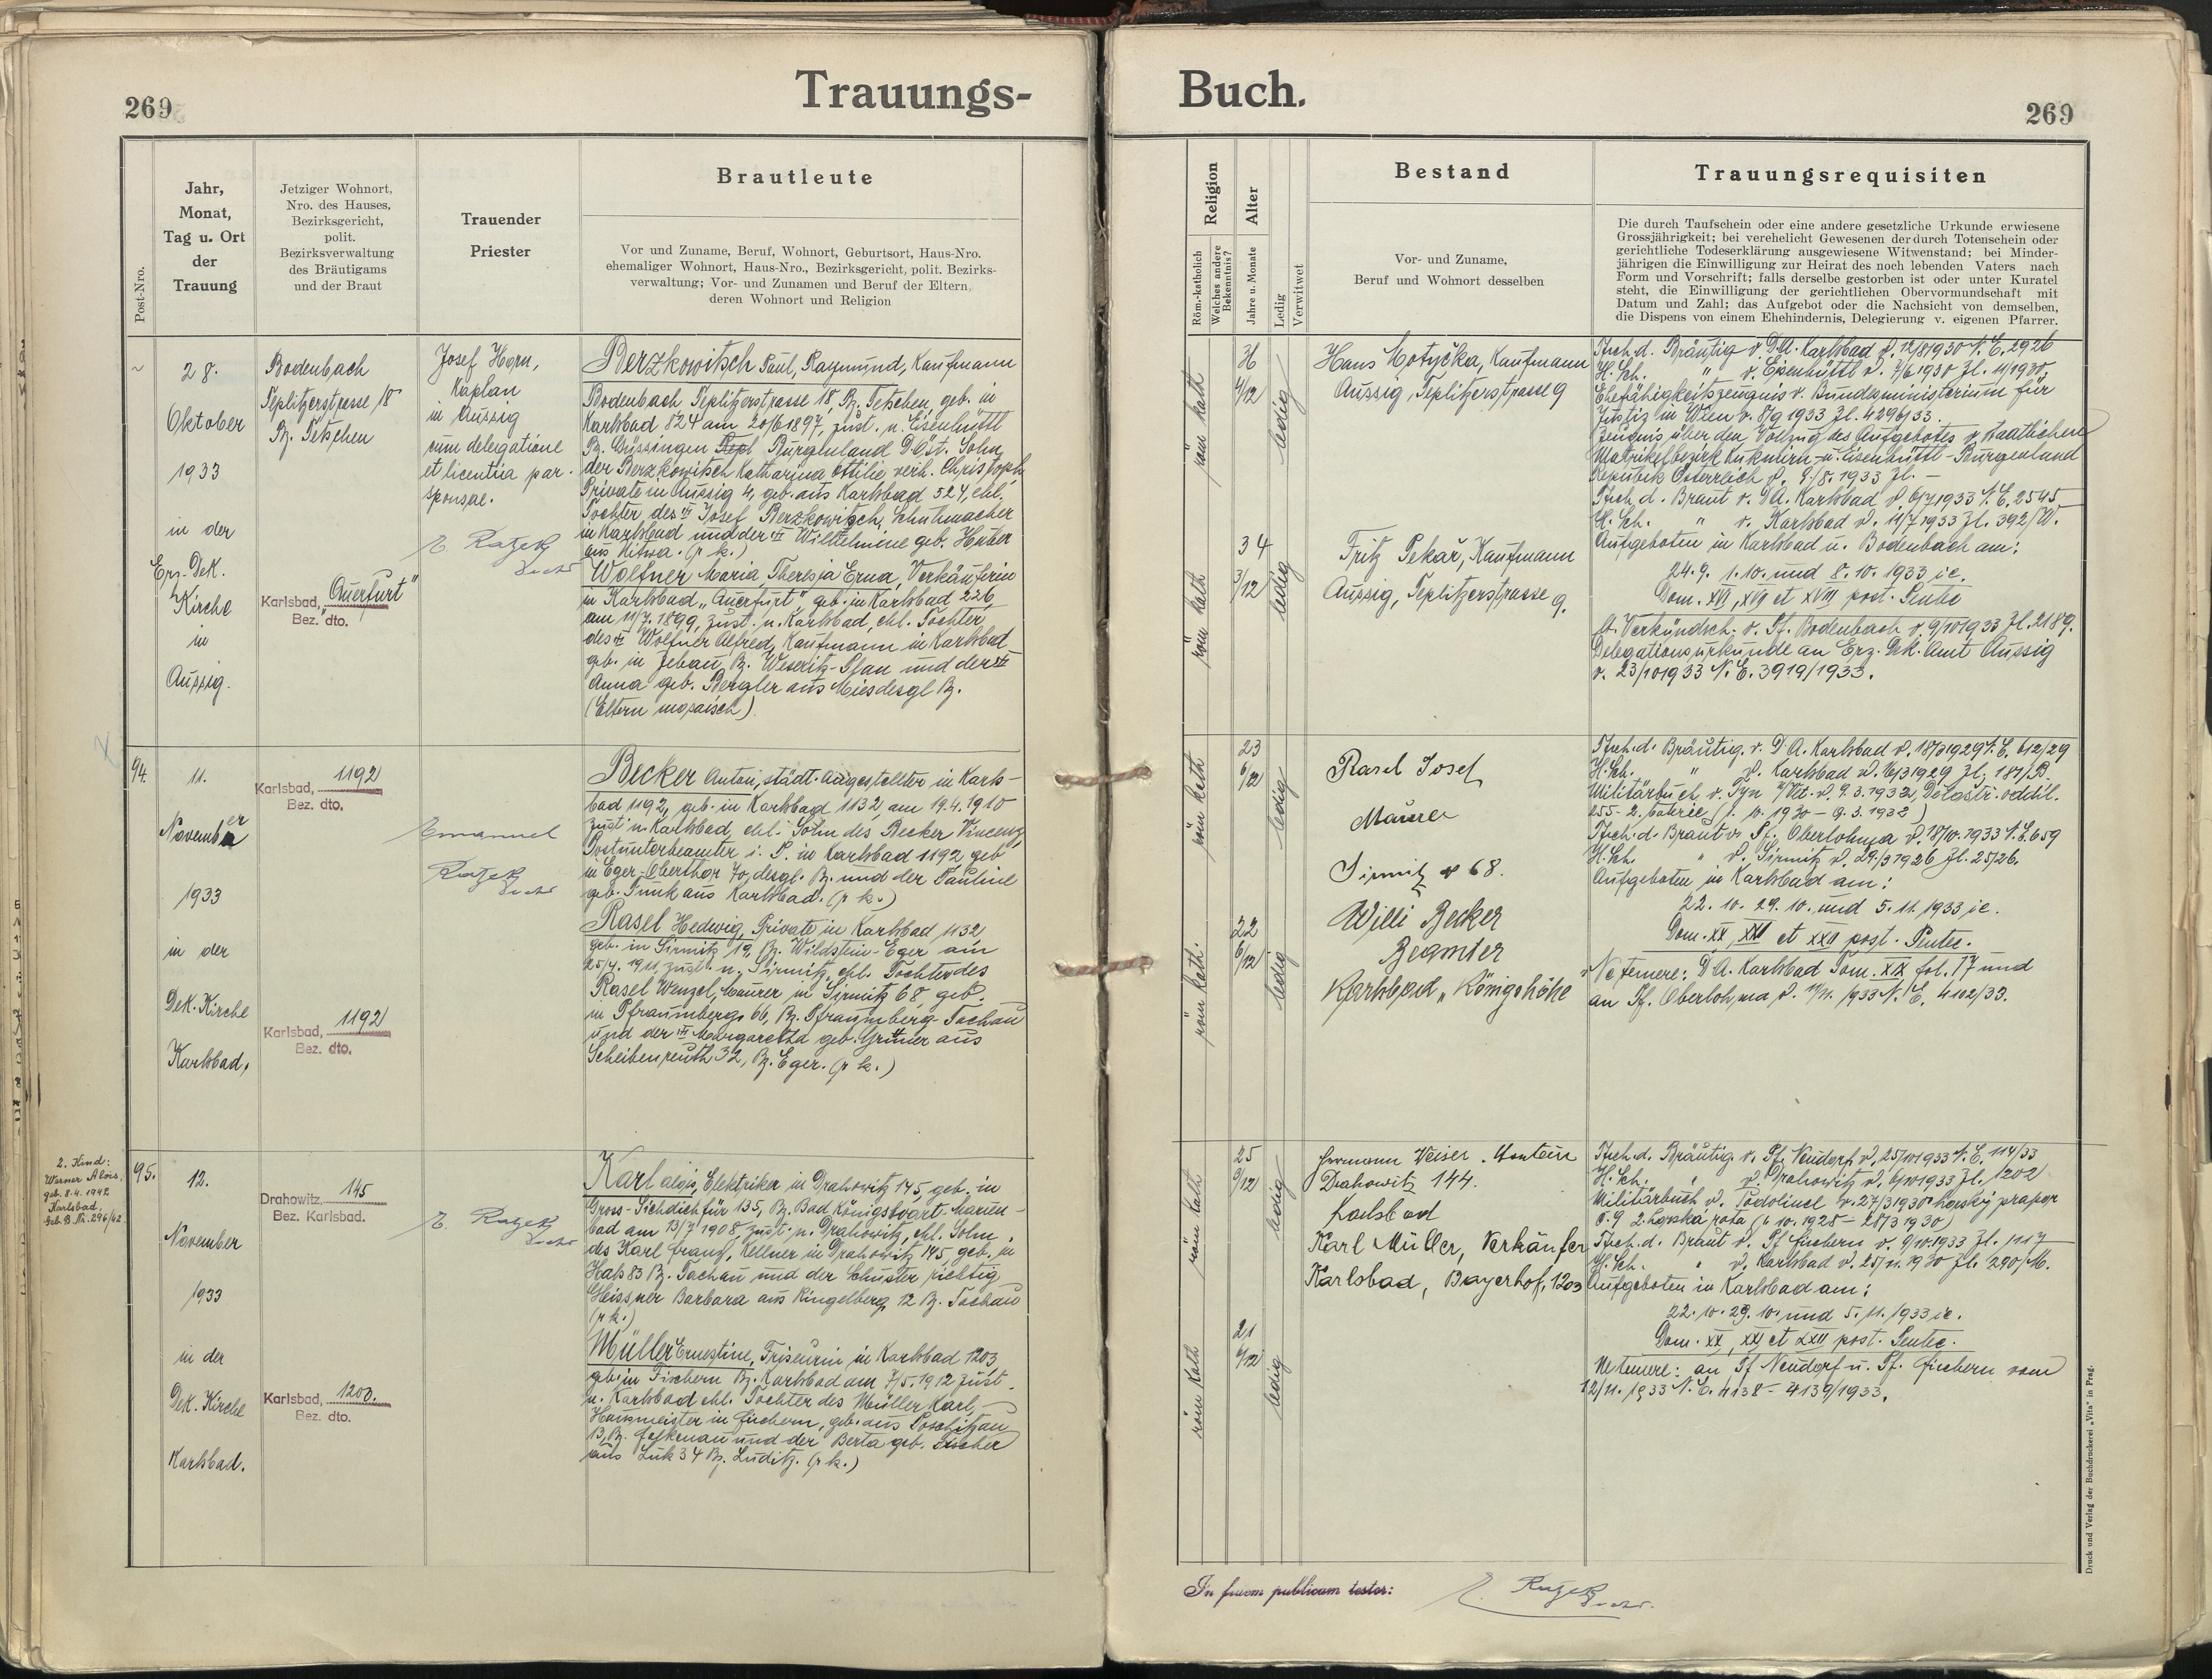 269
Trauungs-
Post-Nro.
Jahr,
Monat,
Tag u. Ort
der
Trauung
Jetziger Wohnort,
Nro. des Hauses,
Bezirksgericht,
polit.
Bezirksverwaltung
des Bräutigams
und der Braut
Trauender
Priester
Brautleute
Vor und Zuname, Beruf, Wohnort, Geburtsort, Haus-Nro.
ehemaliger Wohnort, Haus-Nro., Bezirksgericht, polit. Bezirks-
verwaltung; Vor- und Zunamen und Beruf der Eltern,
deren Wohnort und Religion
~
28.
Oktober
1933
in der
Erz-Dek.
Kirche
in
Aussig.
Bodenbach
Teplitzerstrasse 18
Bz. Tetschen
Karlsbad, „Auerfurt"
Bez. dto.
Josef Horn,
Kaplan
in Aussig
cum delegatione
et licentia par.
sponsae.
E. Ratzek
Berzkowitsch Paul, Raymund, Kaufmann
Bodenbach Teplitzerstrasse 18, Bz. Tetschen, geb. in
Karlsbad 824 am 20/6 1897, zust. n. Eisenhüttl
Bz. Güssingen Burgenland D.Öst. Sohn
der Berzkowitsch Katharina Ottilie verh. Christoph,
Private in Aussig 4, geb. aus Karlsbad 524, ehl.
Tochter des Josef Berzkowitsch, Schuhmacher
in Karlsbad und der Wilhelmine geb. Huber
aus (r k.)
Wolfner Maria Theresia Erna, Verkäuferin
in Karlsbad „Auerfurt", geb. in Karlsbad 226
am 11/7. 1899, zust. n. Karlsbad, ehl. Tochter
des Wolfner Alfred, Kaufmann in Karlsbad
geb. in Zebau, Bz. Weseritz-Plan und der
Anna geb. Bergler aus Mies desgl Bz.
(Eltern mosaisch)
94.
11.
November
1933
in der
Dek. Kirche
Karlsbad.
Karlsbad, 1192
Bez. dto.
Karlsbad, 1192
Bez. dto.
Emanuel
Ratzek
Becker Anton, städt. Angestellter in Karls-
bad 1192, geb. in Karlsbad 1132, am 19.4.1910
zust n. Karlsbad, ehl. Sohn des Becker Vincenz,
Postunterbeamter i. P. in Karlsbad 1192, geb
in Eger-Oberthor 70, desgl. Bz. und der Pauline
geb. Funk aus Karlsbad. (r k.)
Rasel Hedwig, Private in Karlsbad 1132
geb. in Sirmitz 19, Bz. Wildstein-Eger am
25/4. 1911, zust. n. Sirmitz, ehl. Tochter des
Rasel Wenzel, Maurer in Sirmitz 68 geb.
in Pfraumberg 66, Bz. Pfraumberg-Tachau
und der Margaretha geb. Grüner aus
Scheibenreuth 32, Bz. Eger. (r k.)
2. Kind:
Werner Alois,
geb. 8.4.1942
Karlsbad,
Geb. B. Nr. 296/42
95.
12.
November
1933
in der
Dek. Kirche
Karlsbad.
Drahowitz, 145
Bez. Karlsbad.
Karlsbad, 1200.
Bez. dto.
E. Ratzek
Karl Alois, Elektriker in Drahowitz 145, geb. in
Gross-Sichdichfür 135, Bz. Bad Königswart Marien-
bad am 13/7 1908, zust. n. Drahowitz, ehl. Sohn
des Karl Franz, Kellner in Drahowitz 145, geb. in
Hals 83 Bz. Tachau und der Schuster richtig
Heissner Barbara aus Ringelberg 12 Bz. Tachau
(r k.)
Müller Ernestine, Friseurin in Karlsbad 1203,
geb. in Fischern Bz. Karlsbad am 7/5. 1912 zust.
n. Karlsbad ehl. Tochter des Müller Karl,
Hausmeister in Fischern, geb. aus Poschitzau
13, Bz. Falkenau und der Berta geb. Fischer
aus Luk 34 Bz. Luditz. (r k.)
Buch.
269
Religion
Röm.-katholich
Welches andere
Bekenntnis?
Alter
Jahre u. Monate
Ledig
Verwitwet
Bestand
Vor- und Zuname,
Beruf und Wohnort desselben
Trauungsrequisiten
Die durch Taufschein oder eine andere gesetzliche Urkunde erwiesene
Grossjährigkeit; bei verehelicht Gewesenen der durch Totenschein oder
gerichtliche Todeserklärung ausgewiesene Witwenstand; bei Minder-
jährigen die Einwilligung zur Heirat des noch lebenden Vaters nach
Form und Vorschrift; falls derselbe gestorben ist oder unter Kuratel
steht, die Einwilligung der gerichtlichen Obervormundschaft mit
Datum und Zahl; das Aufgebot oder die Nachsicht von demselben,
die Dispens von einem Ehehindernis, Delegierung v. eigenen Pfarrer.
röm kath
36
4/12
ledig
röm kath
34
3/12
ledig
Hans Motyčka, Kaufmann
Aussig, Teplitzerstrasse 9
Fritz Pekař, Kaufmann
Aussig, Teplitzerstrasse 9.
Tsch. d. Bräutig v. D.A. Karlsbad d. 12/8 1930 N.E. 2926
H. Sch. " v. Eisenhüttl d. 7/6 1930 Zl. 11/1930,
Ehefähigkeitszeugnis v. Bundesministerium für
Justiz in Wien v. 8/9 1933 Zl. 42961/33.
Zeugnis über den Vollzug des Aufgebotes v. staatlichen
Matrikelbezirk Kukmirn- u. Eisenhüttl-Burgenland
Republik Österreich d. 9/8. 1933 Zl. -
Tsch. d. Braut v. D.A. Karlsbad d. 6/7 1933 N.E. 2545
H. Sch. " v. Karlsbad d. 11/7 1933 Zl. 392/W.
Aufgeboten in Karlsbad u. Bodenbach am:
24.9. 1.10. und 8.10. 1933 ie.
Dom. XVI, XVII et XVIII post. Pente
lt. Verkündsch. v. Pf. Bodenbach v. 9/10 1933 Zl. 2189.
Delegationsurkunde an Erz. Dek. Amt Aussig
v. 23/10 1933 N.E. 3919/1933.
röm kath
23
6/12
ledig
röm kath.
22
6/12
ledig
Rasel Josef
Maurer
Sirmitz 68.
Willi Becker
Beamter
Karlsbad „Königshöhe"
Tsch. d. Bräutig. v. D A. Karlsbad d. 18/3 1929 N.E. 612/29
H. Sch. " d. Karlsbad d. 16/3 1929 Zl. 181/B.
Militärbuch v. Týn d. 9.3.1932, Dělostř. oddíl.
255-2. baterie (1. 10. 1930 - 9.3.1932)
Tsch. d. Braut v. Pf. Oberlohma d. 18/10. 1933 N.E. 659
H. Sch. " d. Sirmitz d. 29./3 1926 Zl. 25/26.
Aufgeboten in Karlsbad am:
22. 10. 29. 10. und 5. 11. 1933 ie.
Dom. XX, XXI et XXII post. Pentec.
Ne temere: D A. Karlsbad Tom. XIX fol. 17 und
an Pf. Oberlohma d. 11/11. 1933 N.E. 4102/33.
röm kath
25
3/12
ledig
röm kath
21
6/12
ledig
Hermann Weiser. Monteur
Drahowitz 144.
Karlsbad
Karl Müller, Verkäufer
Karlsbad, Bayerhof, 1203
Tsch. d. Bräutig v. Pf. Neudorf d. 25/10 1933 N.E. 114/33
H. Sch. " v. Drahowitz d. 6/10 1933 Zl. 1202
Militärbuch d. Podolinec v. 27/3 1930 horský prapor
č. 9 2. horská rota (1. 10. 1928 - 28/3 1930)
Tsch. d. Braut v. Pf Fischern v. 9/10. 1933 Zl. 1117
H. Sch. " v. Karlsbad d. 25/11. 1930 Zl. 290/M.
Aufgeboten in Karlsbad am:
22. 10. 29. 10. und 5. 11. 1933 ie.
Dom. XX, XXI et XXII post. Pentec.
Ne temere: an Pf Neudorf u. Pf. Fischern vom
12/11. 1933 N.E. 4138 - 4139/1933.
In fidem publicam testor:
E. Ratzek
Druck und Verlag der Buchdruckerei „Vita" in Prag.